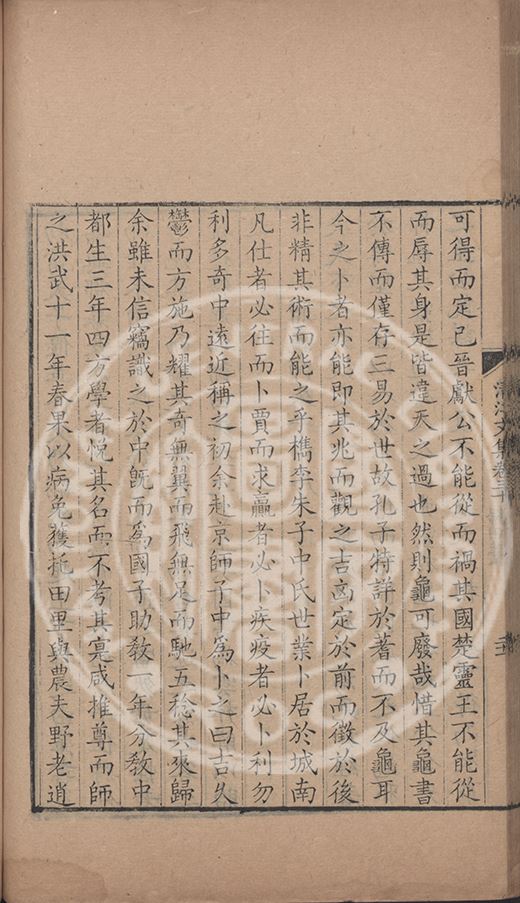 可得而定已晉獻公不能從而禍其國楚靈王不能從
而辱其身是皆違天之過也然則龜可廢哉惜其龜書
不傳而僅存三易於世故孔子特詳於蓍而不及龜耳
今之卜者亦能即其兆而觀之吉凶定於前而徵於後
非精其術而能之乎檇李朱子中氏世業卜居於城南
凡仕者必往而卜賈而求贏者必卜疾疫者必卜利勿
利多奇中遠近稱之初余赴京師子中爲卜之曰吉久
鬱而方施乃耀其奇無翼而飛無足而馳五稔其來歸
余雖未信竊識之於中旣而爲國子助敎一年分敎中
都生三年四方學者悅其名而不考其寔咸推尊而師
之洪武十一年春果以病免獲托田里與農夫野老逍
清江文集卷三十